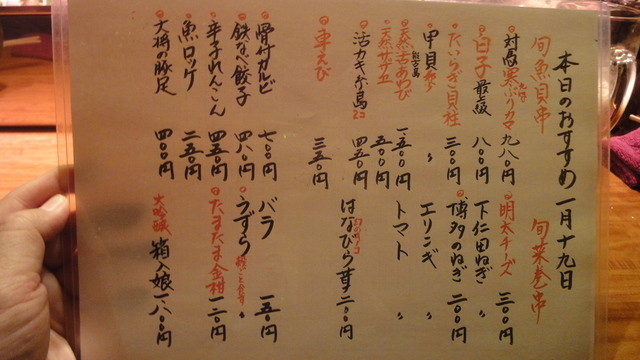 本日のおすすめ 一月十九日
旬魚貝串
対馬寒ぶりカマ 九八〇円
白子 最上級 八〇〇円
たいらぎ貝柱 三〇〇円
甲貝 〃
天然活あわび 一五〇〇円
天然サザエ 五〇〇円
活カキ 2コ 四五〇円
車えび 三五〇円
骨付カルビ 七〇〇円
鉄なべ餃子 四八〇円
辛子れんこん 四五〇円
魚ロッケ 二五〇円
大将豚足 四〇〇円
旬菜巻串
明太チーズ 三〇〇円
下仁田ねぎ 〃
博多のねぎ 二〇〇円
エリンギ 〃
トマト 〃
はなびら茸 二〇〇円
バラ 一五〇円
うずら 〃
たまたま金柑 一二〇円
大吟醸 箱入娘 一八〇〇円